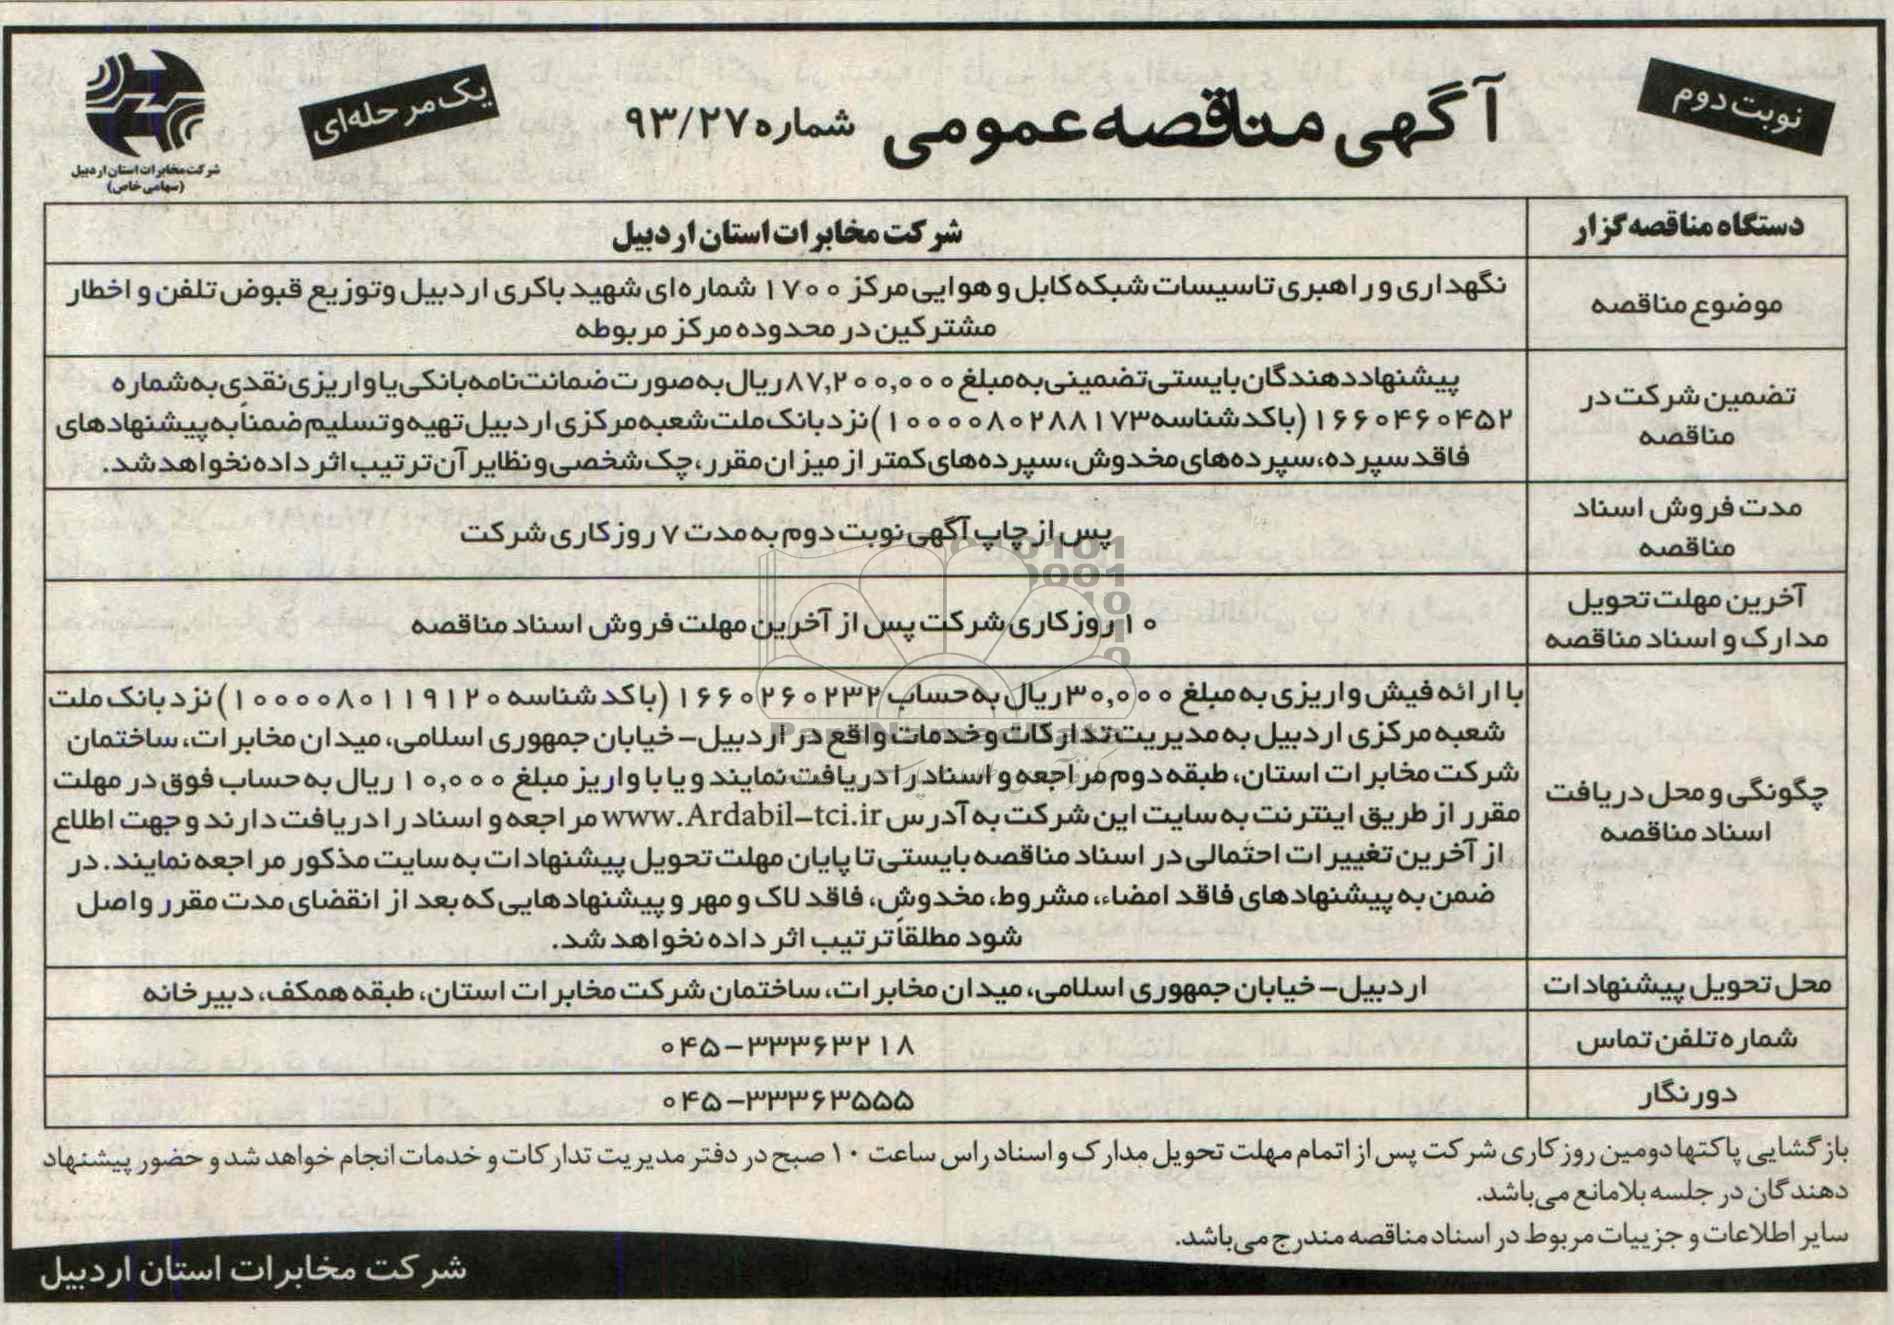 نوبت دوم
آگهی مناقصه عمومی شماره ۹۳/۲۷
یک مرحله‌ای
شرکت مخابرات استان اردبیل
(سهامی خاص)
دستگاه مناقصه گزار
شرکت مخابرات استان اردبیل
موضوع مناقصه
نگهداری و راهبری تاسیسات شبکه کابل و هوایی مرکز ۱۷۰۰ شماره‌ای شهید باکری اردبیل و توزیع قبوض تلفن و اخطار
مشترکین در محدوده مرکز مربوطه
تضمین شرکت در
مناقصه
پیشنهاددهندگان بایستی تضمینی به مبلغ ۸۷,۲۰۰,۰۰۰ ریال به صورت ضمانت نامه بانکی یا واریزی نقدی به شماره
۱۶۶۰۴۶۰۴۵۲ (باکد شناسه ۱۰۰۰۰۸۰۲۸۸۱۷۳) نزد بانک ملت شعبه مرکزی اردبیل تهیه و تسلیم ضمناً به پیشنهادهای
فاقد سپرده، سپرده‌های مخدوش، سپرده‌های کمتر از میزان مقرر، چک شخصی و نظایر آن ترتیب اثر داده نخواهد شد.
مدت فروش اسناد
مناقصه
پس از چاپ آگهی نوبت دوم به مدت ۷ روز کاری شرکت
آخرین مهلت تحویل
مدارک و اسناد مناقصه
۱۰ روز کاری شرکت پس از آخرین مهلت فروش اسناد مناقصه
چگونگی و محل دریافت
اسناد مناقصه
با ارائه فیش واریزی به مبلغ ۳۰,۰۰۰ ریال به حساب ۱۶۶۰۲۶۰۲۳۲ (باکد شناسه ۱۰۰۰۰۸۰۱۱۹۱۲۰) نزد بانک ملت
شعبه مرکزی اردبیل به مدیریت تدارکات و خدمات واقع در اردبیل- خیابان جمهوری اسلامی، میدان مخابرات، ساختمان
شرکت مخابرات استان، طبقه دوم مراجعه و اسناد را دریافت نمایند و یا با واریز مبلغ ۱۰,۰۰۰ ریال به حساب فوق در مهلت
مقرر از طریق اینترنت به سایت این شرکت به آدرس www.Ardabil-tci.ir مراجعه و اسناد را دریافت دارند و جهت اطلاع
از آخرین تغییرات احتمالی در اسناد مناقصه بایستی تا پایان مهلت تحویل پیشنهادات به سایت مذکور مراجعه نمایند. در
ضمن به پیشنهادهای فاقد امضاء، مشروط، مخدوش، فاقد لاک و مهر و پیشنهادهایی که بعد از انقضای مدت مقرر واصل
شود مطلقاً ترتیب اثر داده نخواهد شد.
محل تحویل پیشنهادات
اردبیل- خیابان جمهوری اسلامی، میدان مخابرات، ساختمان شرکت مخابرات استان، طبقه همکف، دبیرخانه
شماره تلفن تماس
۰۴۵-۳۳۳۶۳۲۱۸
دورنگار
۰۴۵-۳۳۳۶۳۵۵۵
بازگشایی پاکتها دومین روز کاری شرکت پس از اتمام مهلت تحویل مدارک و اسناد راس ساعت ۱۰ صبح در دفتر مدیریت تدارکات و خدمات انجام خواهد شد و حضور پیشنهاد
دهندگان در جلسه بلامانع می‌باشد.
سایر اطلاعات و جزییات مربوط در اسناد مناقصه مندرج می‌باشد.
شرکت مخابرات استان اردبیل